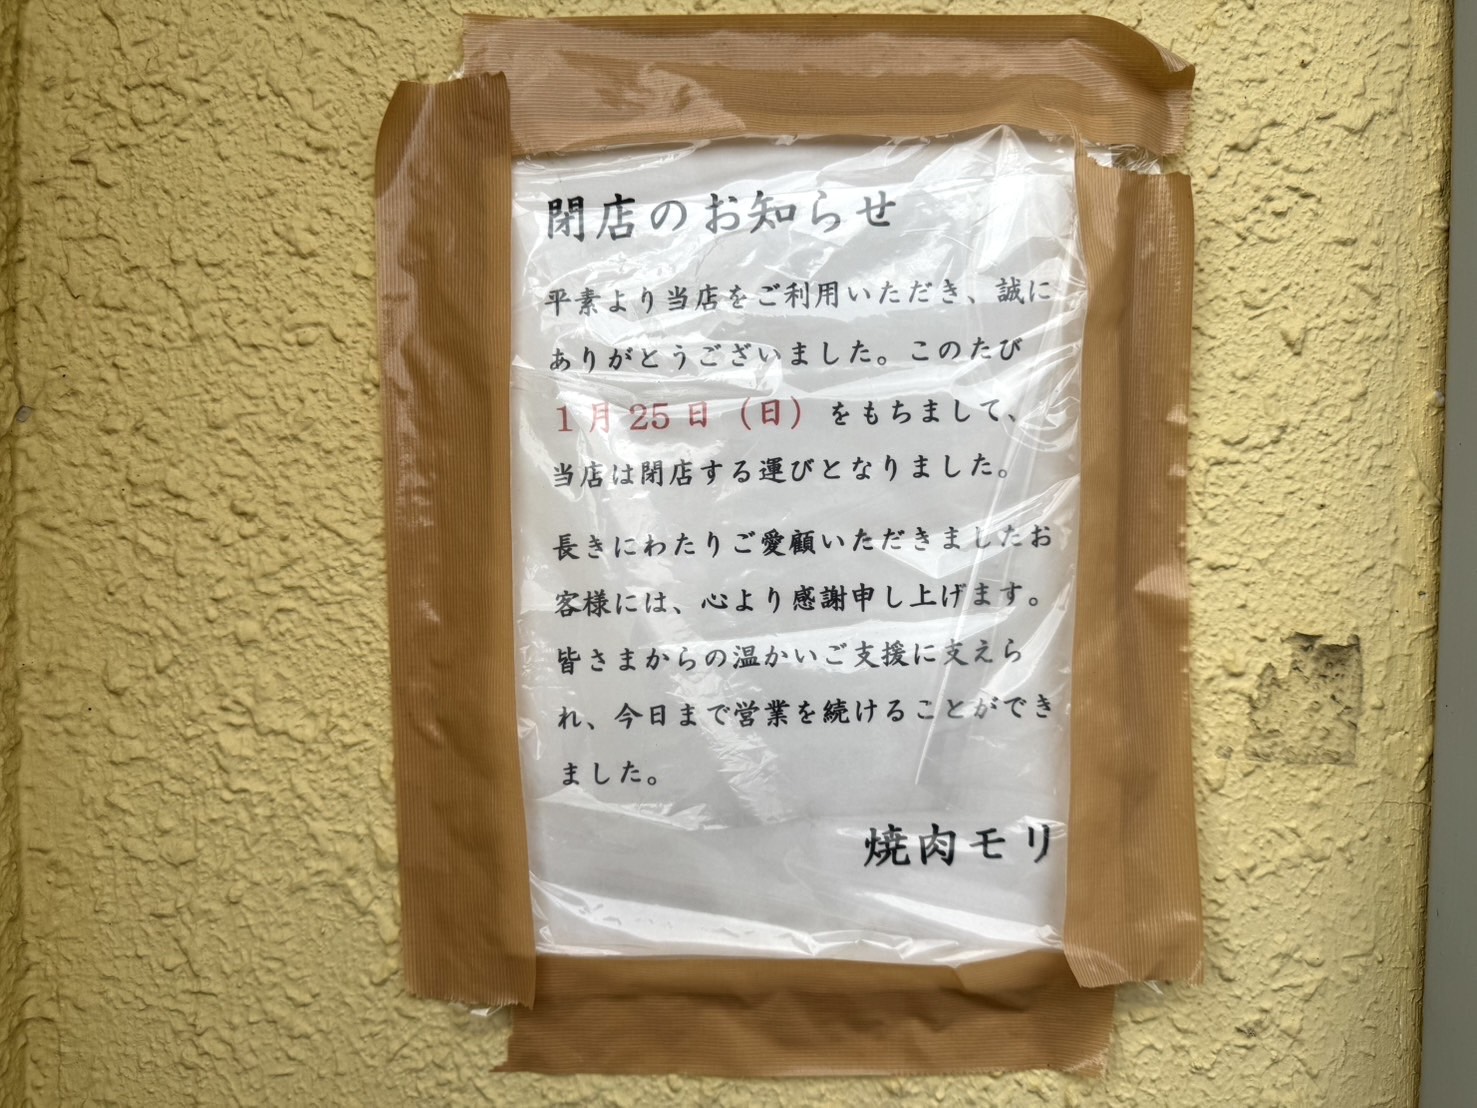 閉店のお知らせ
平素より当店をご利用いただき、誠に
ありがとうございました。このたび
1月25日（日）をもちまして、
当店は閉店する運びとなりました。
長きにわたりご愛顧いただきましたお
客様には、心より感謝申し上げます。
皆さまからの温かいご支援に支えら
れ、今日まで営業を続けることができ
ました。
焼肉モリ